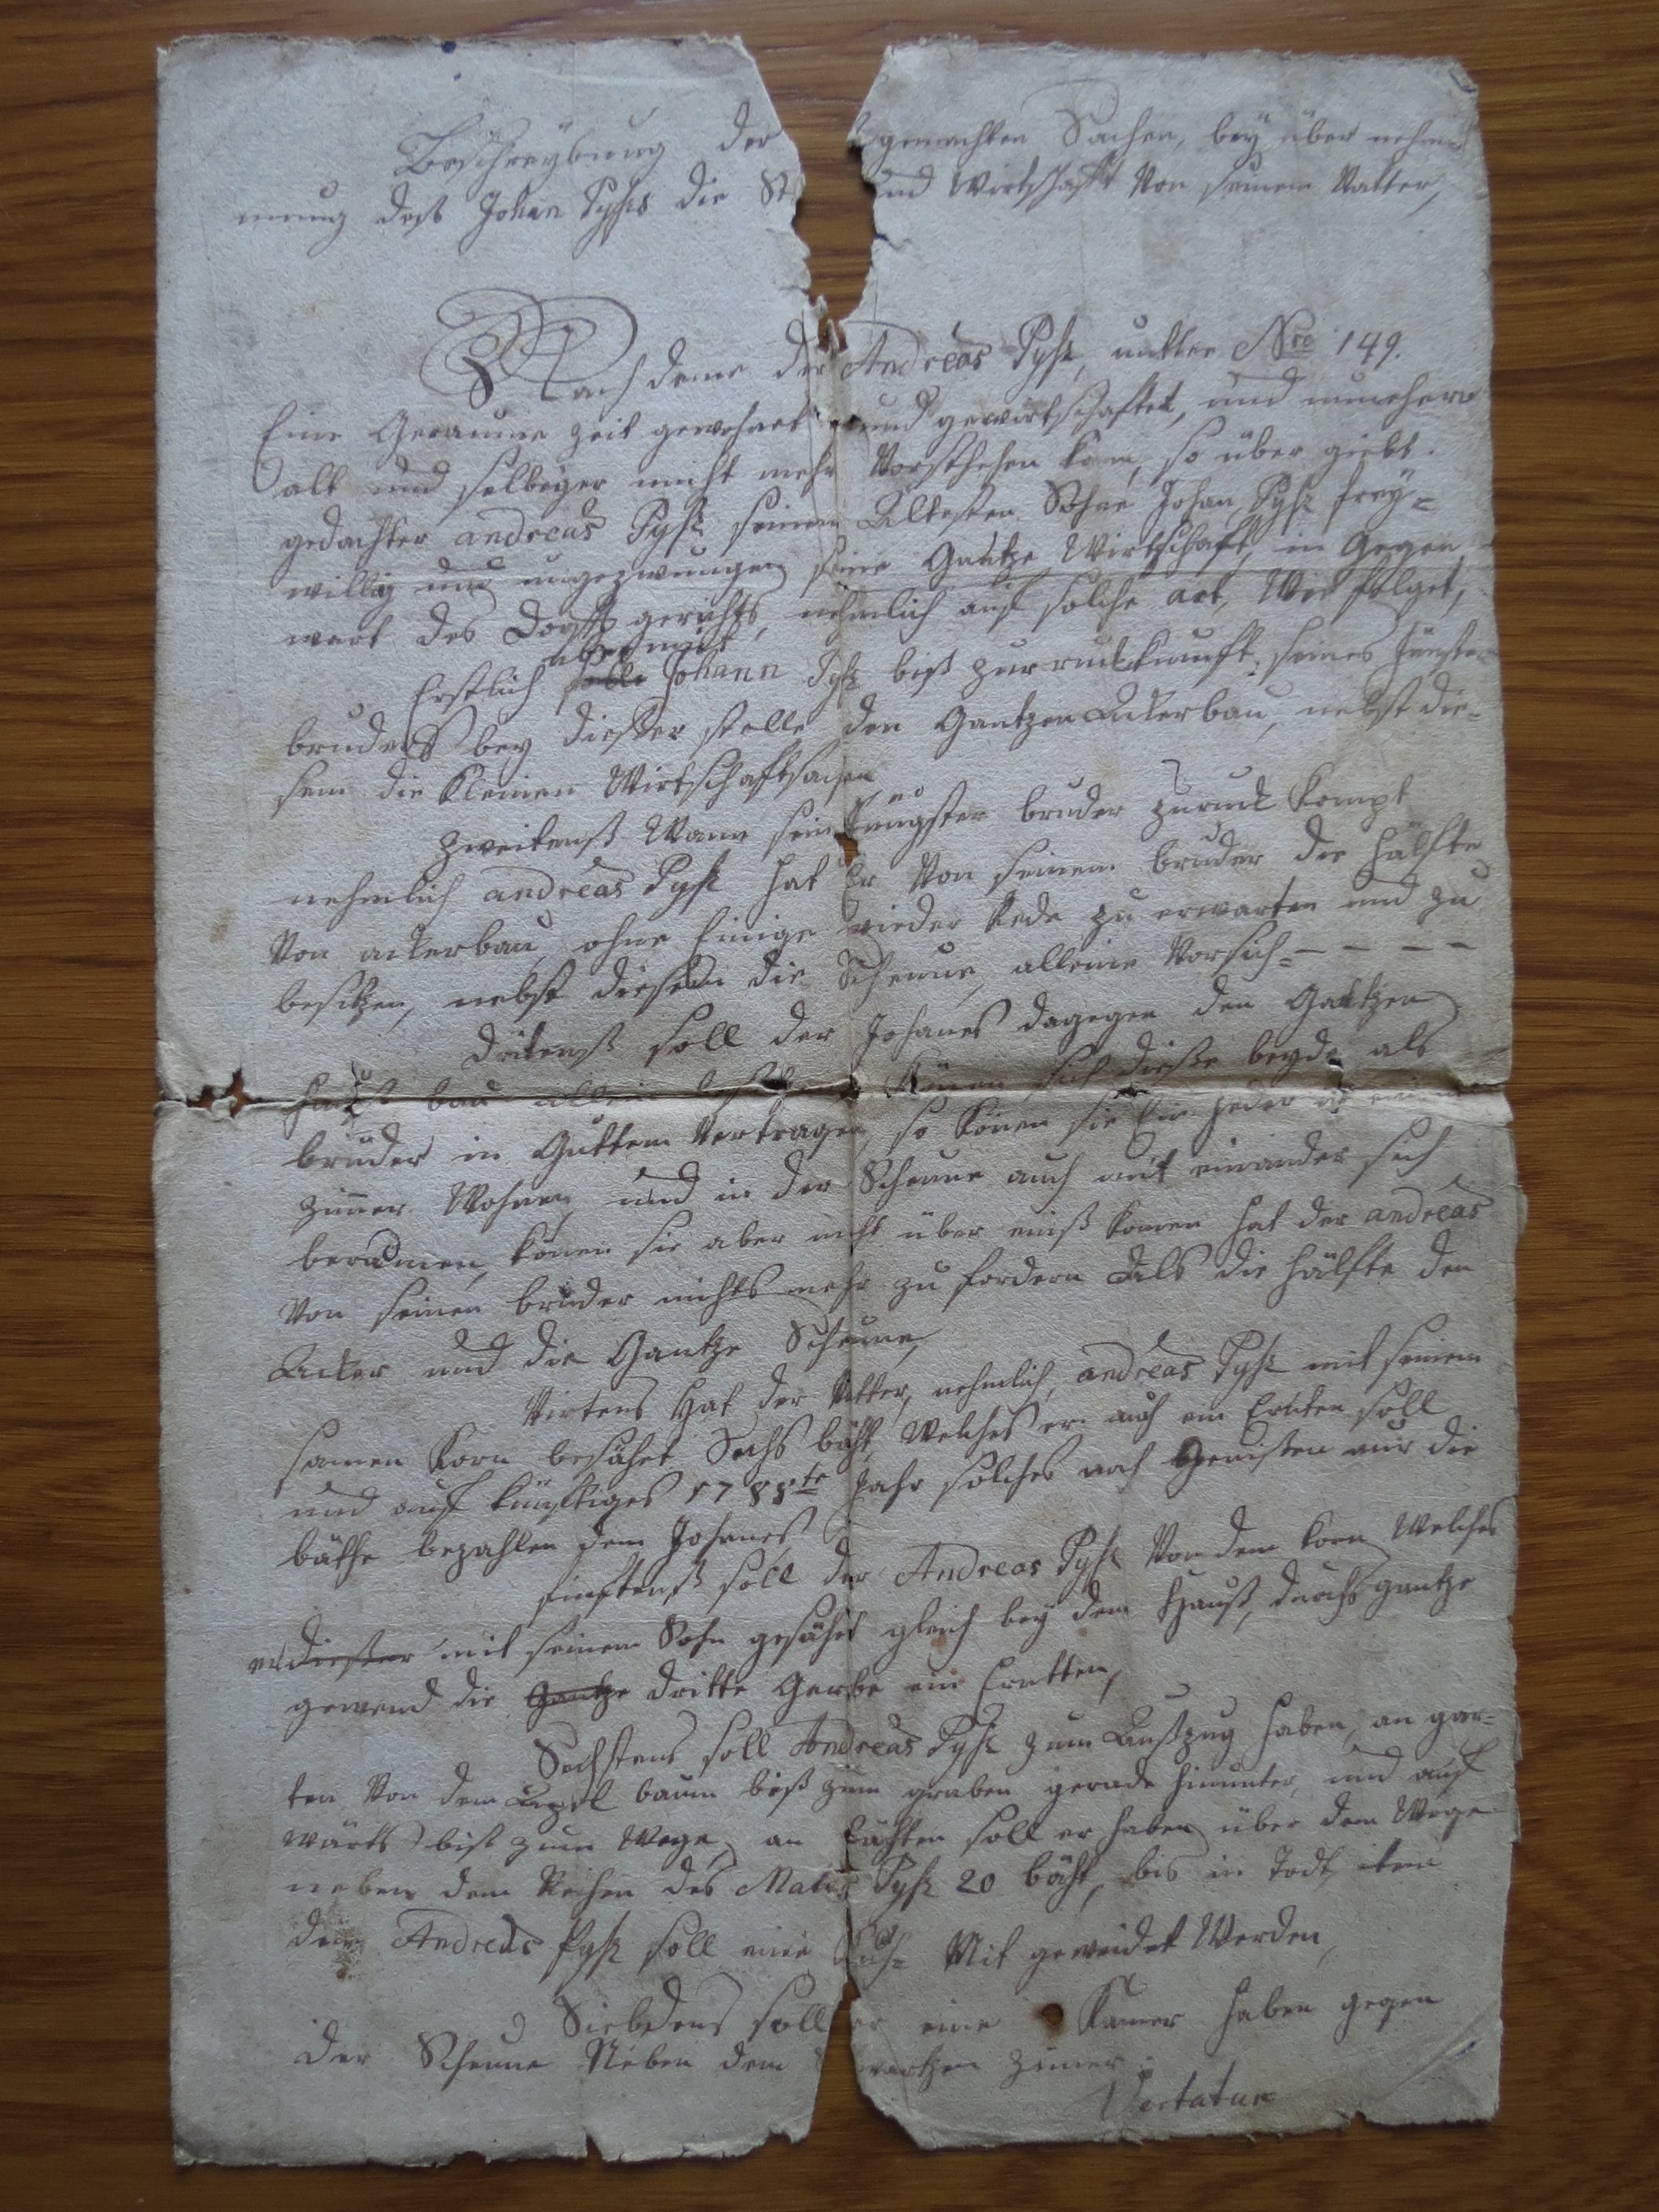 Beschreybung der gemachten Sachen, bey über nehm=
mung deß Johan Pyss die St und Wirtschafft Von seinem Vatter,
Nach deme der Andreas Pysz, untter Nro 149.
Eine Geraume zeit gewohnet und gewirtschafftet, und nunehero
alt und selbeger nicht mehr Vorstehen kan, so über giebt
gedachter andreas Pysz seinem Ältesten Sohne Johan Pysz frey=
willig und ungezwungen seine Gantze Wirtschafft, in Gegen
wart des Dorffs gerichts, nehmlich auf solche art, Wie folget,
Erstlich Johann Pysz biß zurruckkunfft seines Jünsten
bruders bey dießer stelle den Gantzen Ackerbau, nebst die=
sem die kleinen Wirtschafftsachen
Zweitenß Wann sein Jüngster bruder zuruck kompt
nehmlich andreas Pysz hat Er Von seinem bruder die hälfte
Von ackerbau ohne Einige wieder Rede zu erwarten und zu
besitzen, nebst diesem die Scheune, alleine Vorsich= – – – –
Dritenß soll der Johanes dagegen den Gantzen
Hauß bau allein Könen sich dieße beyde als
brüder in Guttem Vertragen, so könen sie Ein Jeder in einem
zimer Wohnen, und in der Scheune auch mit einander sich
beraumen, könen sie aber nicht über einß komen hat der andreas
Von seinen bruder nichts mehr zu fordern Als die hälfte den
Acker und die Gantze Scheune,
Virtens Hat der Vatter, nehmlich, andreas Pysz mit seinem
samen Korn besähet Sechs bäht, Welches er auch ein Ernten soll
und auf künftiges 1788te Jahr solches nach Genisten nur die
bäthe bezahlen dem Johanes
finftenß soll der Andreas Pysz Von dem korn Welches
er dießer mit seinem Sohn gesähet gleich bey dem Hauß, durchs gantze
gewend die Gantze dritte Garbe ein Erntten,
Sechstens soll Andreas Pysz zum Außzug haben, an gar=
ten Von dem Apfel baum biß zum graben gerade hinunter, und auf
wärts biß zum Wege, an soll er haben über dem Wege
neben dem Reihen des Matis Pysz 20 bäht, bis in Todt, item
dem Andreas Pysz soll eine Kuh= Mit geweidet Werden,
Siebdens soll er eine Kamer haben gegen
der Scheune Neben dem zimer
Vertatur